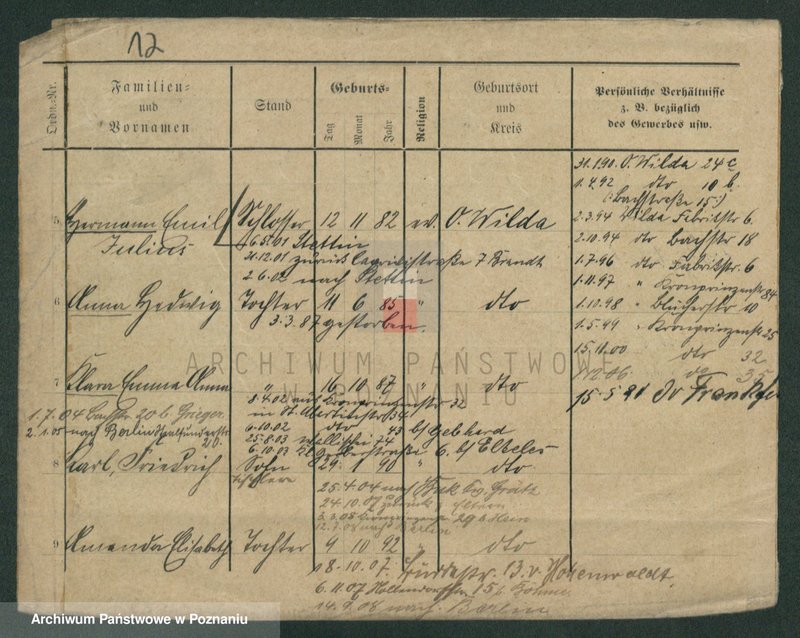 12
Ordn.-Nr.
Familien- und Vornamen
Stand
Geburts-
Tag
Monat
Jahr
Religion
Geburtsort und Kreis
Persönliche Verhältnisse z. B. bezüglich des Gewerbes usw.
31.1.90. O. Wilda 24 c
1.4.92 dto 10 b.
(: Bachstraße 15 :)
5 Hermann Emil Schlosser 12 11 82 ev. O. Wilda
2.3.94 Wilda Fabrikstr 6.
Julius 6.5.01 Stettin
2.10.94 dto Bachstr 18
21.12.01 zurück 7 Brandt
1.7.96 dto Fabrikstr. 6
2.6.02 nach Stettin
1.11.97 " Kronprinzenstr. 84
6 Anna Hedwig Tochter 11 6 85 " dto
1.10.98 " Blücherstr 10
3.3.87 gestorben.
1.5.99 " Kronprinzenstr 25
15.11.00 dto 32
ARCHIWUM PAŃSTWOWE
W POZNANIU
7 Klara Emma Anna " 16 10 87 " dto
06. 35
8.4.02 aus Kronprinzenstr 32
15.5.
1.7.04 Bachstr 20 b. Grieger
2.1.05 nach Berlin
20.
6.10.02 dto 43 b/ Gebhard
25.8.03 Wallischei 74
6.10.03 6. b/ Elkeles
8 Karl, Friedrich Sohn 29. 1 90 " dto
25.4.04 nach Buk Grätz
24.10.07 zurück
nach Berlin
9 Amanda Elisabeth Tochter 9 10 92 dto
18.10.07. 13. v. Hohenwaldt.
6.11.07 15 b. Böhme
14.9.08 nach Berlin
Archiwum Państwowe w Poznaniu